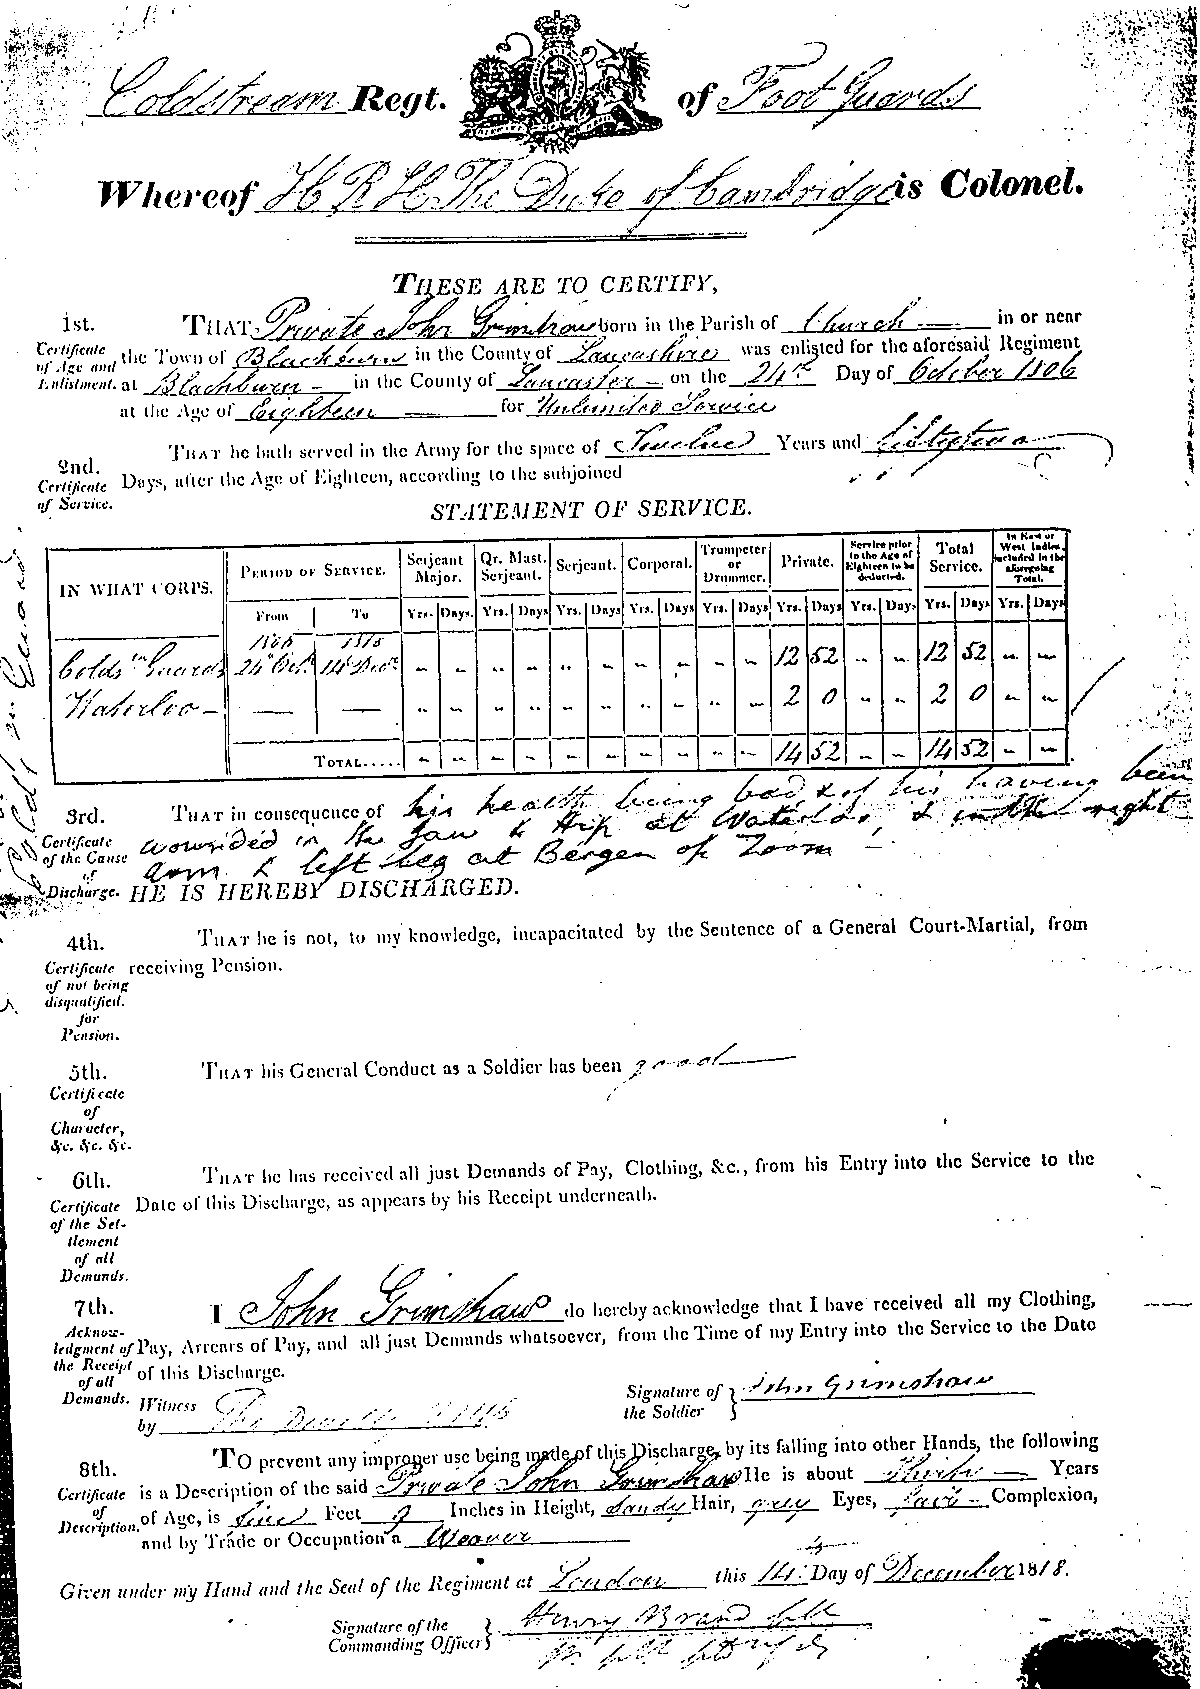 Coldstream Regt. of Foot Guards
Whereof H R H The Duke of Cambridge is Colonel.
THESE ARE TO CERTIFY,
1st. Certificate of Age and Enlistment.
THAT Private John Grimshaw born in the Parish of Church in or near
the Town of Blackburn in the County of Lancashire was enlisted for the aforesaid Regiment
at Blackburn - in the County of Lancaster - on the 24th Day of October 1806
at the Age of Eighteen for Unlimited Service
2nd. Certificate of Service.
THAT he hath served in the Army for the space of Twelve Years and fiftytwo
Days, after the Age of Eighteen, according to the subjoined
STATEMENT OF SERVICE.
IN WHAT CORPS. PERIOD OF SERVICE. Serjeant Major. Qr. Mast. Serjeant. Serjeant. Corporal. Trumpeter or Drummer. Private. Service prior to the Age of Eighteen to be deducted. Total Service. In East or West Indies, included in the aforegoing Total.
From To Yrs. Days. Yrs. Days Yrs. Days Yrs. Days Yrs. Days Yrs. Days Yrs. Days Yrs. Days Yrs. Days
1806 1818
Coldsm Guards 24 Octr. 14 Decr. " " " " " " " " " " 12 52 " " 12 52 " "
Waterloo - — — " " " " " " " " " " 2 0 " " 2 0 " "
TOTAL..... " " " " " " " " " " 14 52 " " 14 52 " "
3rd. Certificate of the Cause of Discharge.
THAT in consequence of his health being bad & of his having been
wounded in the Jaw & Hip at Waterloo, & in the right
arm & left Leg at Bergen op Zoom -
HE IS HEREBY DISCHARGED.
4th. Certificate of not being disqualified for Pension.
THAT he is not, to my knowledge, incapacitated by the Sentence of a General Court-Martial, from
receiving Pension.
5th. Certificate of Character, &c. &c. &c.
THAT his General Conduct as a Soldier has been good
6th. Certificate of the Settlement of all Demands.
THAT he has received all just Demands of Pay, Clothing, &c., from his Entry into the Service to the
Date of this Discharge, as appears by his Receipt underneath.
7th. Acknowledgment of the Receipt of all Demands.
I John Grimshaw do hereby acknowledge that I have received all my Clothing,
Pay, Arrears of Pay, and all just Demands whatsoever, from the Time of my Entry into the Service to the Date
of this Discharge.
Witness by
Signature of the Soldier } John Grimshaw
8th. Certificate of Description.
TO prevent any improper use being made of this Discharge, by its falling into other Hands, the following
is a Description of the said Private John Grimshaw He is about Thirty Years
of Age, is five Feet 9 Inches in Height, Sandy Hair, grey Eyes, Fair - Complexion,
and by Trade or Occupation a Weaver
Given under my Hand and the Seal of the Regiment at London this 14th Day of December 1818.
Signature of the Commanding Officer } Henry Brand